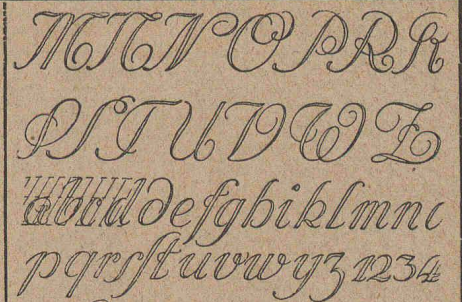 M N N O P R R
P S T U V W Z
a b c d d e f g h i k l m n o
p q r s ſ t u v w y z 1 2 3 4